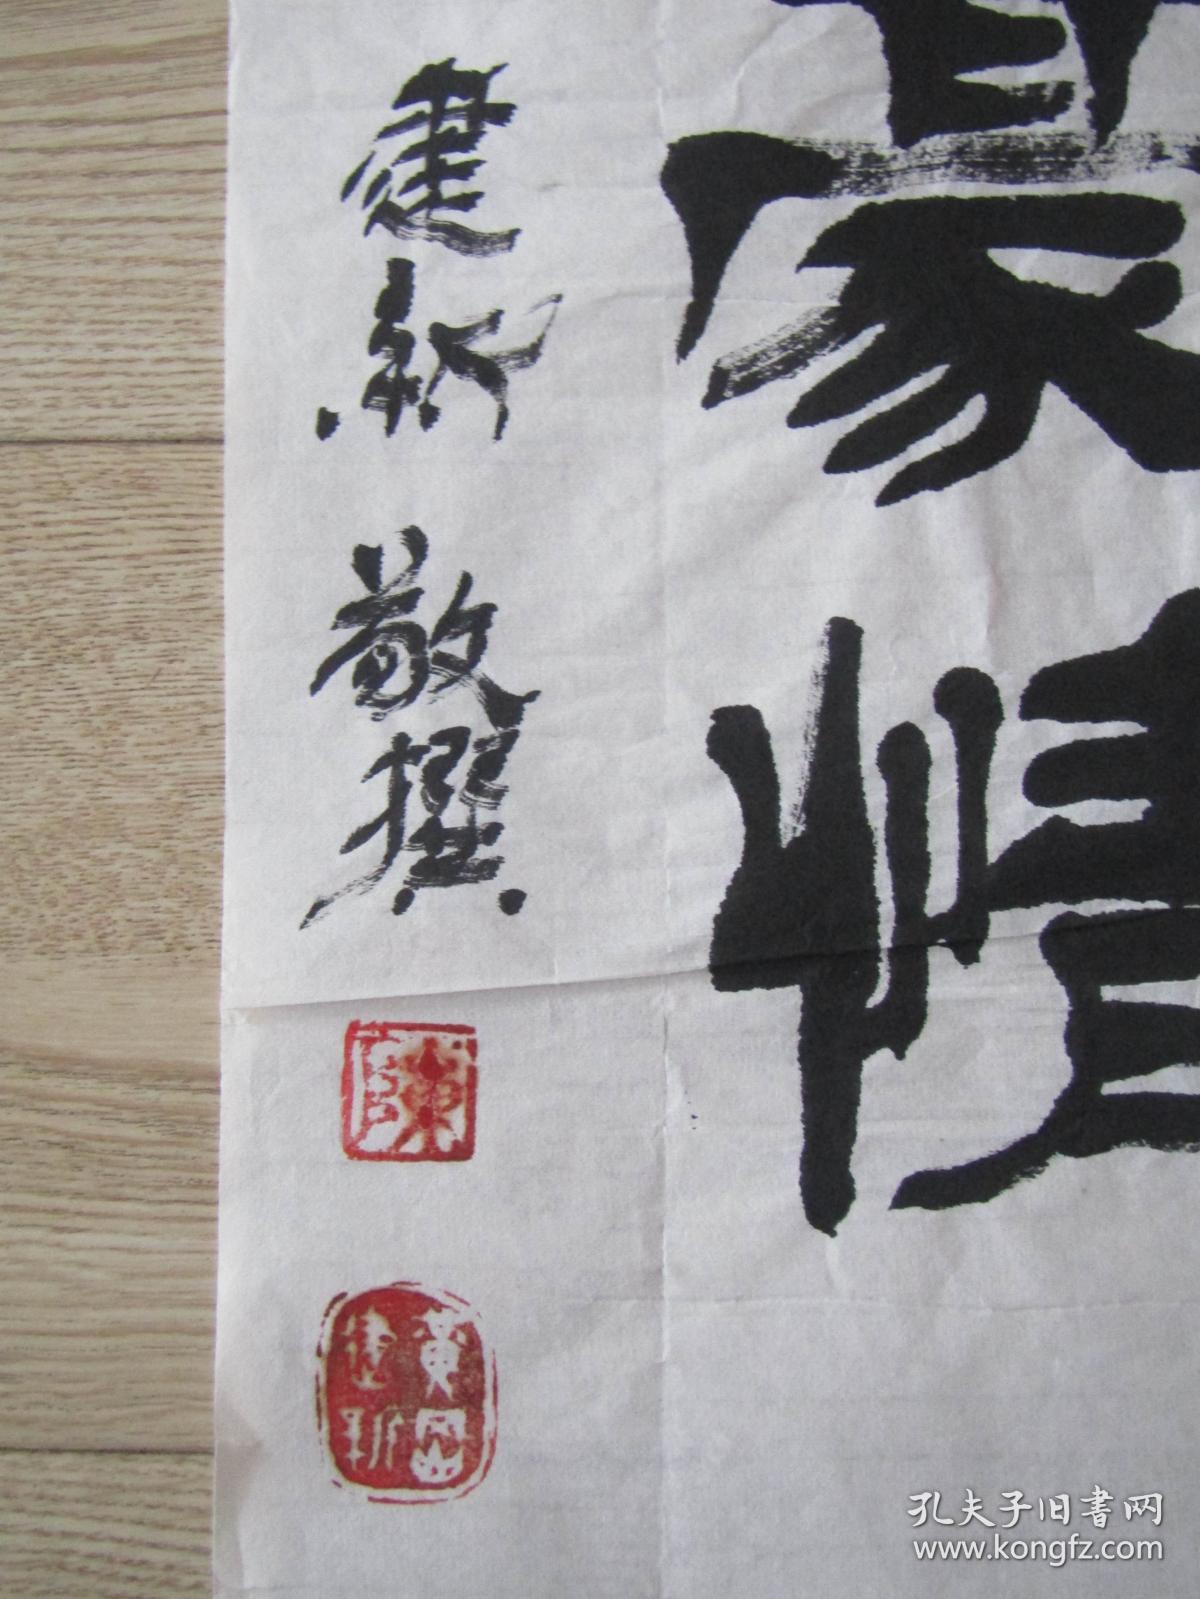 蒙情
建新敬撰
陳
黄岡建新
孔夫子旧書网
www.kongfz.com